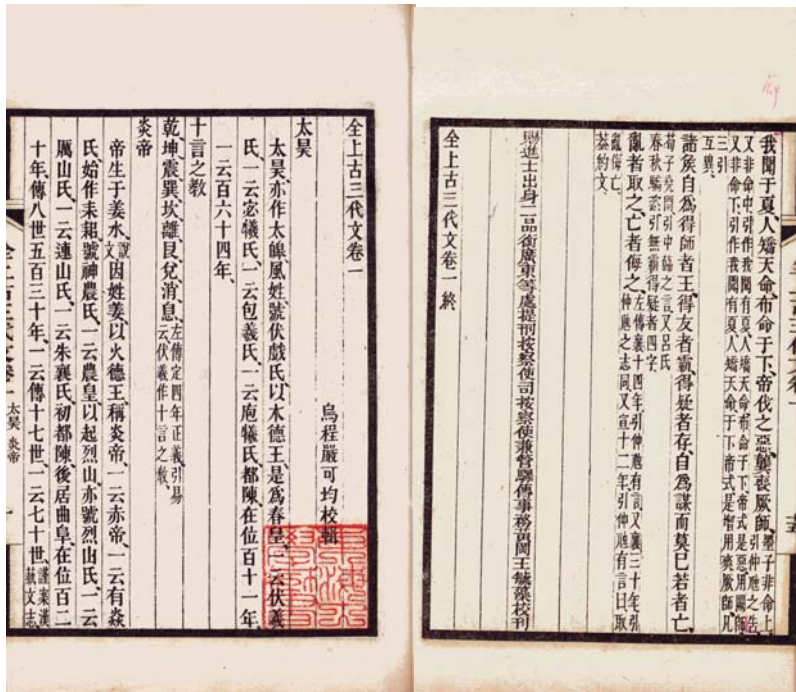 我聞于夏、人矯天命、布命于下、帝伐之惡、龔喪厥師、墨子非命上引仲虺之告
又非命中、引作我聞有夏人矯天命布命于下帝式是惡用闕師
又非命下、引作我聞有夏人矯天命于下帝式是增用爽厥師凡
三引
互異、
諸矦自爲得師者王、得友者霸、得疑者存、自爲謀而莫己若者亡、
荀子堯問引中蘬之言又呂氏
春秋驕恣引無霸得疑者四字
亂者取之、亡者侮之、左傳襄十四年引仲虺有言又襄三十年引仲虺之志同又宣十二年引仲虺有言曰取
亂侮亡
蓋約文、
賜進士出身二品銜廣東等處提刑按察使司按察使兼管驛傳事務黃岡王毓藻校刊
全上古三代文卷一終
全上古三代文卷一
烏程嚴可均校輯
太昊
太昊、亦作太皞、風姓、號伏戲氏、以木德王、是爲春皇、一云伏羲
氏、一云宓犧氏、一云包羲氏、一云庖犧氏、都陳、在位百十一年、
一云百六十四年、
十言之敎
乾坤震巽、坎離艮兌消息、左傳定四年正義引易云伏羲作十言之敎、
炎帝
帝生于姜水、說文因姓姜、以火德王、稱炎帝、一云赤帝、一云有焱
氏、始作耒耜、號神農氏、一云農皇、以起烈山、亦號烈山氏、一云
厲山氏、一云連山氏、一云朱襄氏、初都陳、後居曲阜、在位百二
十年、傳八世五百三十年、一云傳十七世、一云七十世、謹案漢藝文志、
全上古三代文卷一 太昊 炎帝 一